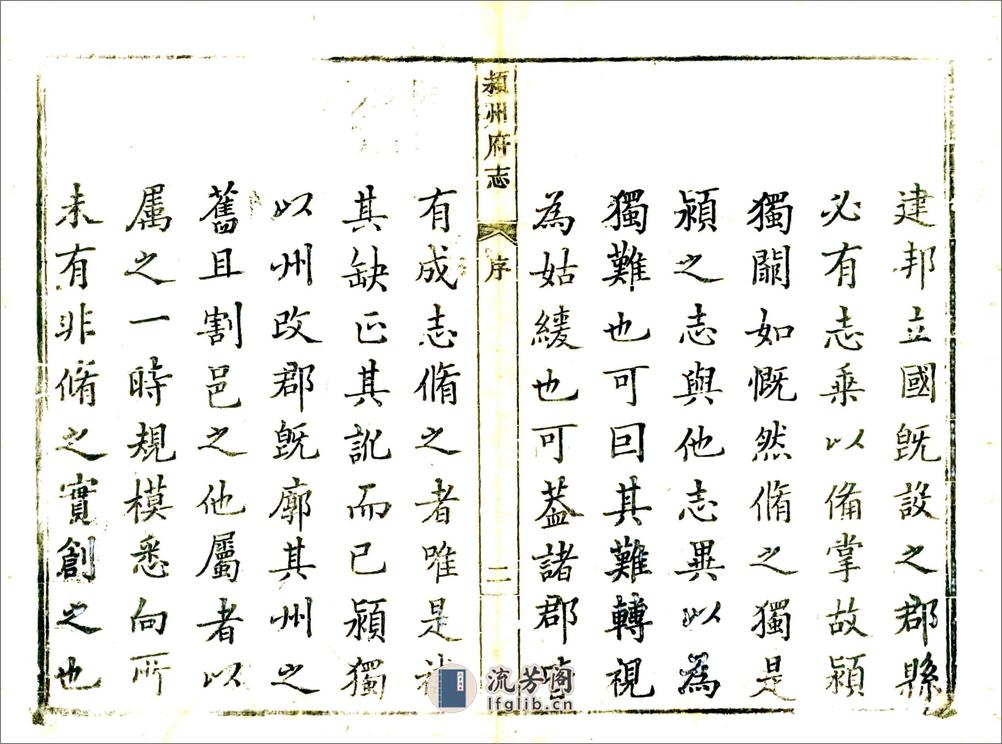 建邦立國既設之郡縣
必有志乘以備掌故潁
獨闕如慨然脩之獨是
潁之志與他志異以為
獨難也可回其難轉視
為姑緩也可葢諸郡
潁州府志 序 二
有成志脩之者唯是
其缺正其訛而已潁獨
以州改郡既廓其州之
舊且割邑之他屬者以
属之一時規模悉向所
未有非脩之實創之也
流芳阁
lfglib.cn